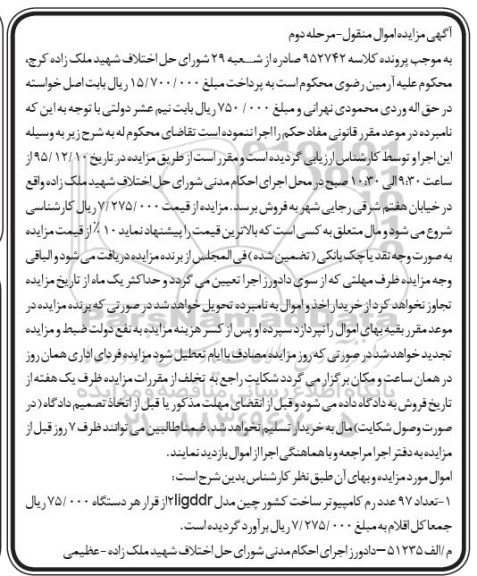 آگهی مزایده اموال منقول-مرحله دوم
به موجب پرونده کلاسه ۹۵۲۷۴۲ صادره از شعبه ۲۹ شورای حل اختلاف شهید ملک زاده کرج،
محکوم علیه آرمین رضوی محکوم است به پرداخت مبلغ ۱۵/۷۰۰/۰۰۰ ریال بابت اصل خواسته
در حق اله وردی محمودی نهرانی و مبلغ ۷۵۰/۰۰۰ ریال بابت نیم عشر دولتی با توجه به این که
نامبرده در موعد مقرر قانونی مفاد حکم را اجرا ننموده است تقاضای محکوم له به شرح زیر به وسیله
این اجرا و توسط کارشناس ارزیابی گردیده است و مقرر است از طریق مزایده در تاریخ ۹۵/۱۲/۱۰ از
ساعت ۹:۳۰ الی ۱۰:۳۰ صبح در محل اجرای احکام مدنی شورای حل اختلاف شهید ملک زاده واقع
در خیابان هفتم شرقی رجایی شهر به فروش برسد. مزایده از قیمت ۷/۲۷۵/۰۰۰ ریال کارشناسی
شروع می شود و مال متعلق به کسی است که بالاترین قیمت را پیشنهاد نماید ۱۰٪ از قیمت مزایده
به صورت وجه نقد یا چک بانکی (تضمین شده) فی المجلس از برنده مزایده دریافت می شود و الباقی
وجه مزایده ظرف مهلتی که از سوی دادورز اجرا تعیین می گردد و حداکثر یک ماه از تاریخ مزایده
تجاوز نخواهد کرد از خریدار اخذ و اموال به نامبرده تحویل خواهد شد در صورتی که برنده مزایده در
موعد مقرر بقیه بهای اموال را نپردازد سپرده او پس از کسر هزینه مزایده به نفع دولت ضبط و مزایده
تجدید خواهد شد در صورتی که روز مزایده مصادف با ایام تعطیل شود مزایده فردای اداری همان روز
در همان ساعت و مکان برگزار می گردد شکایت راجع به تخلف از مقررات مزایده ظرف یک هفته از
تاریخ فروش به دادگاه داده می شود و قبل از انقضای مهلت مذکور یا قبل از اتخاذ تصمیم دادگاه (در
صورت وصول شکایت) مال به خریدار تسلیم نخواهد شد. ضمنا طالبین می توانند ظرف ۷ روز قبل از
مزایده به دفتر اجرا مراجعه و با هماهنگی اجرا از اموال بازدید نمایند.
اموال مورد مزایده و بهای آن طبق نظر کارشناس بدین شرح است:
۱-تعداد ۹۷ عدد رم کامپیوتر ساخت کشور چین مدل rligddr از قرار هر دستگاه ۷۵/۰۰۰ ریال
جمعا کل اقلام به مبلغ ۷/۲۷۵/۰۰۰ ریال برآورد گردیده است.
م/الف ۵۱۲۳۵-دادورز اجرای احکام مدنی شورای حل اختلاف شهید ملک زاده - عظیمی